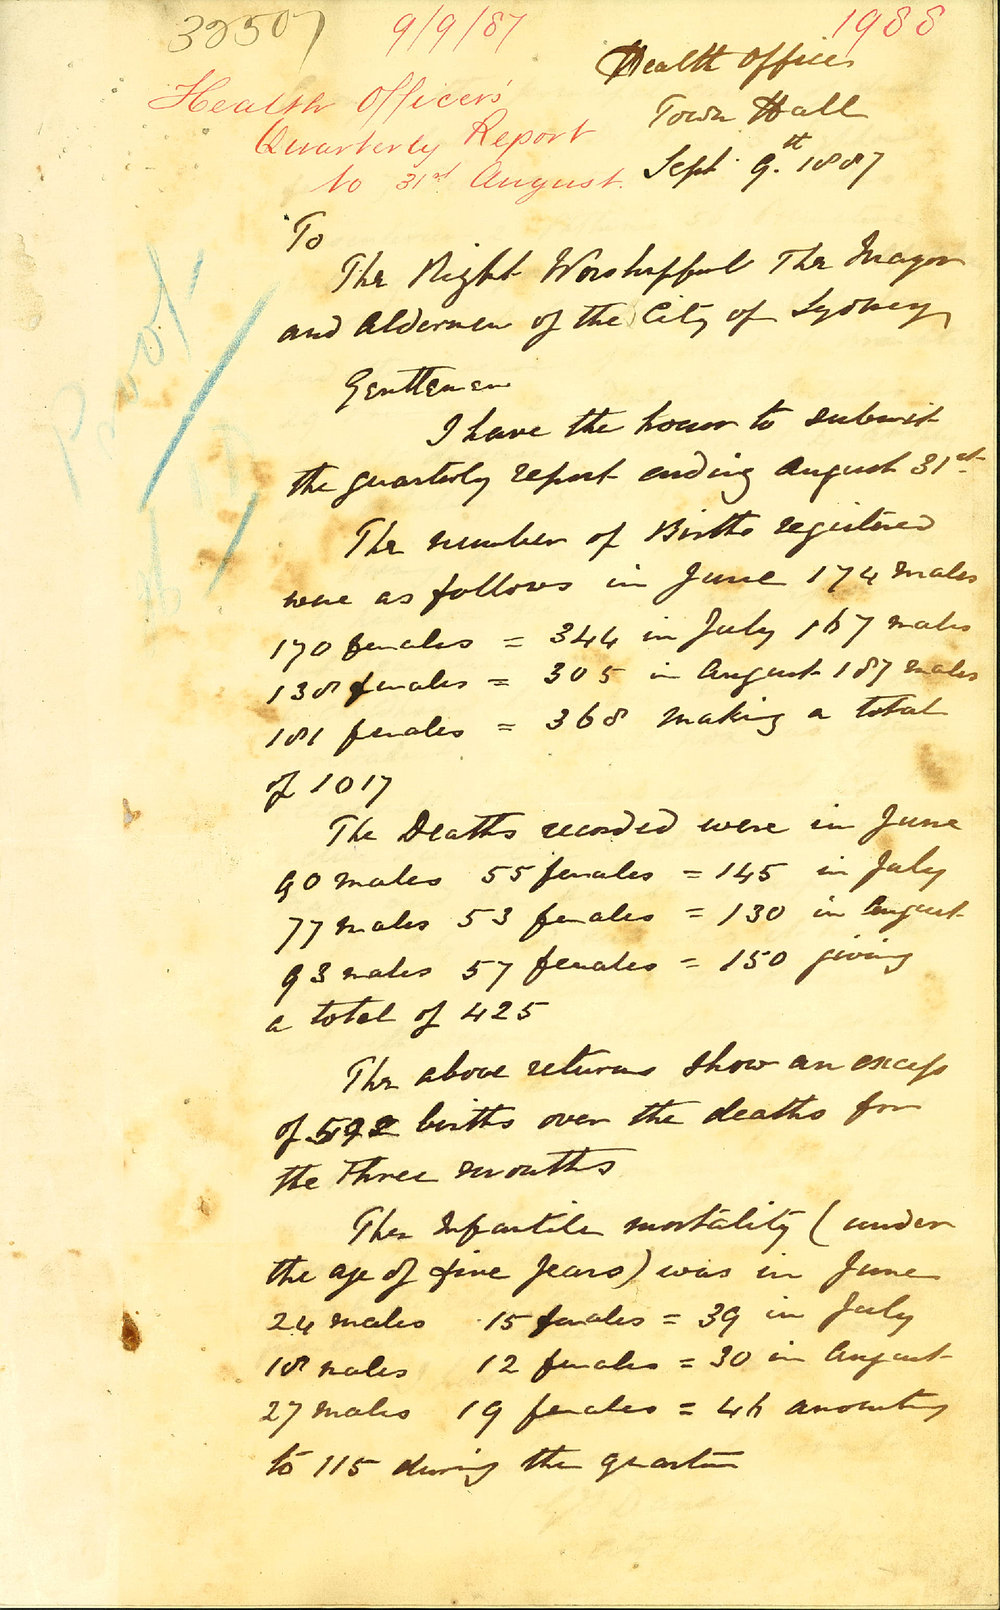 32507 9/9/87 1988
Health Officer's
Quarterly Report
to 31st August.
Health Office
Town Hall
Sept 9.th 1887
To
The Right Worshipful The Mayor
and Aldermen of the City of Sydney
Gentlemen
I have the honor to submit
the quarterly report ending August 31st
The number of Births registered
were as follows in June 174 males
170 females = 344 in July 167 males
138 females = 305 in August 187 males
181 females = 368 making a total
of 1017
The Deaths recorded were in June
90 males 55 females = 145 in July
77 males 53 females = 130 in August
93 males 57 females = 150 giving
a total of 425
The above returns show an excess
of 592 births over the deaths for
the three months
The Infantile mortality (under
the age of five years) was in June
24 males 15 females = 39 in July
18 males 12 females = 30 in August
27 males 19 females = 46 amounting
to 115 during the quarter